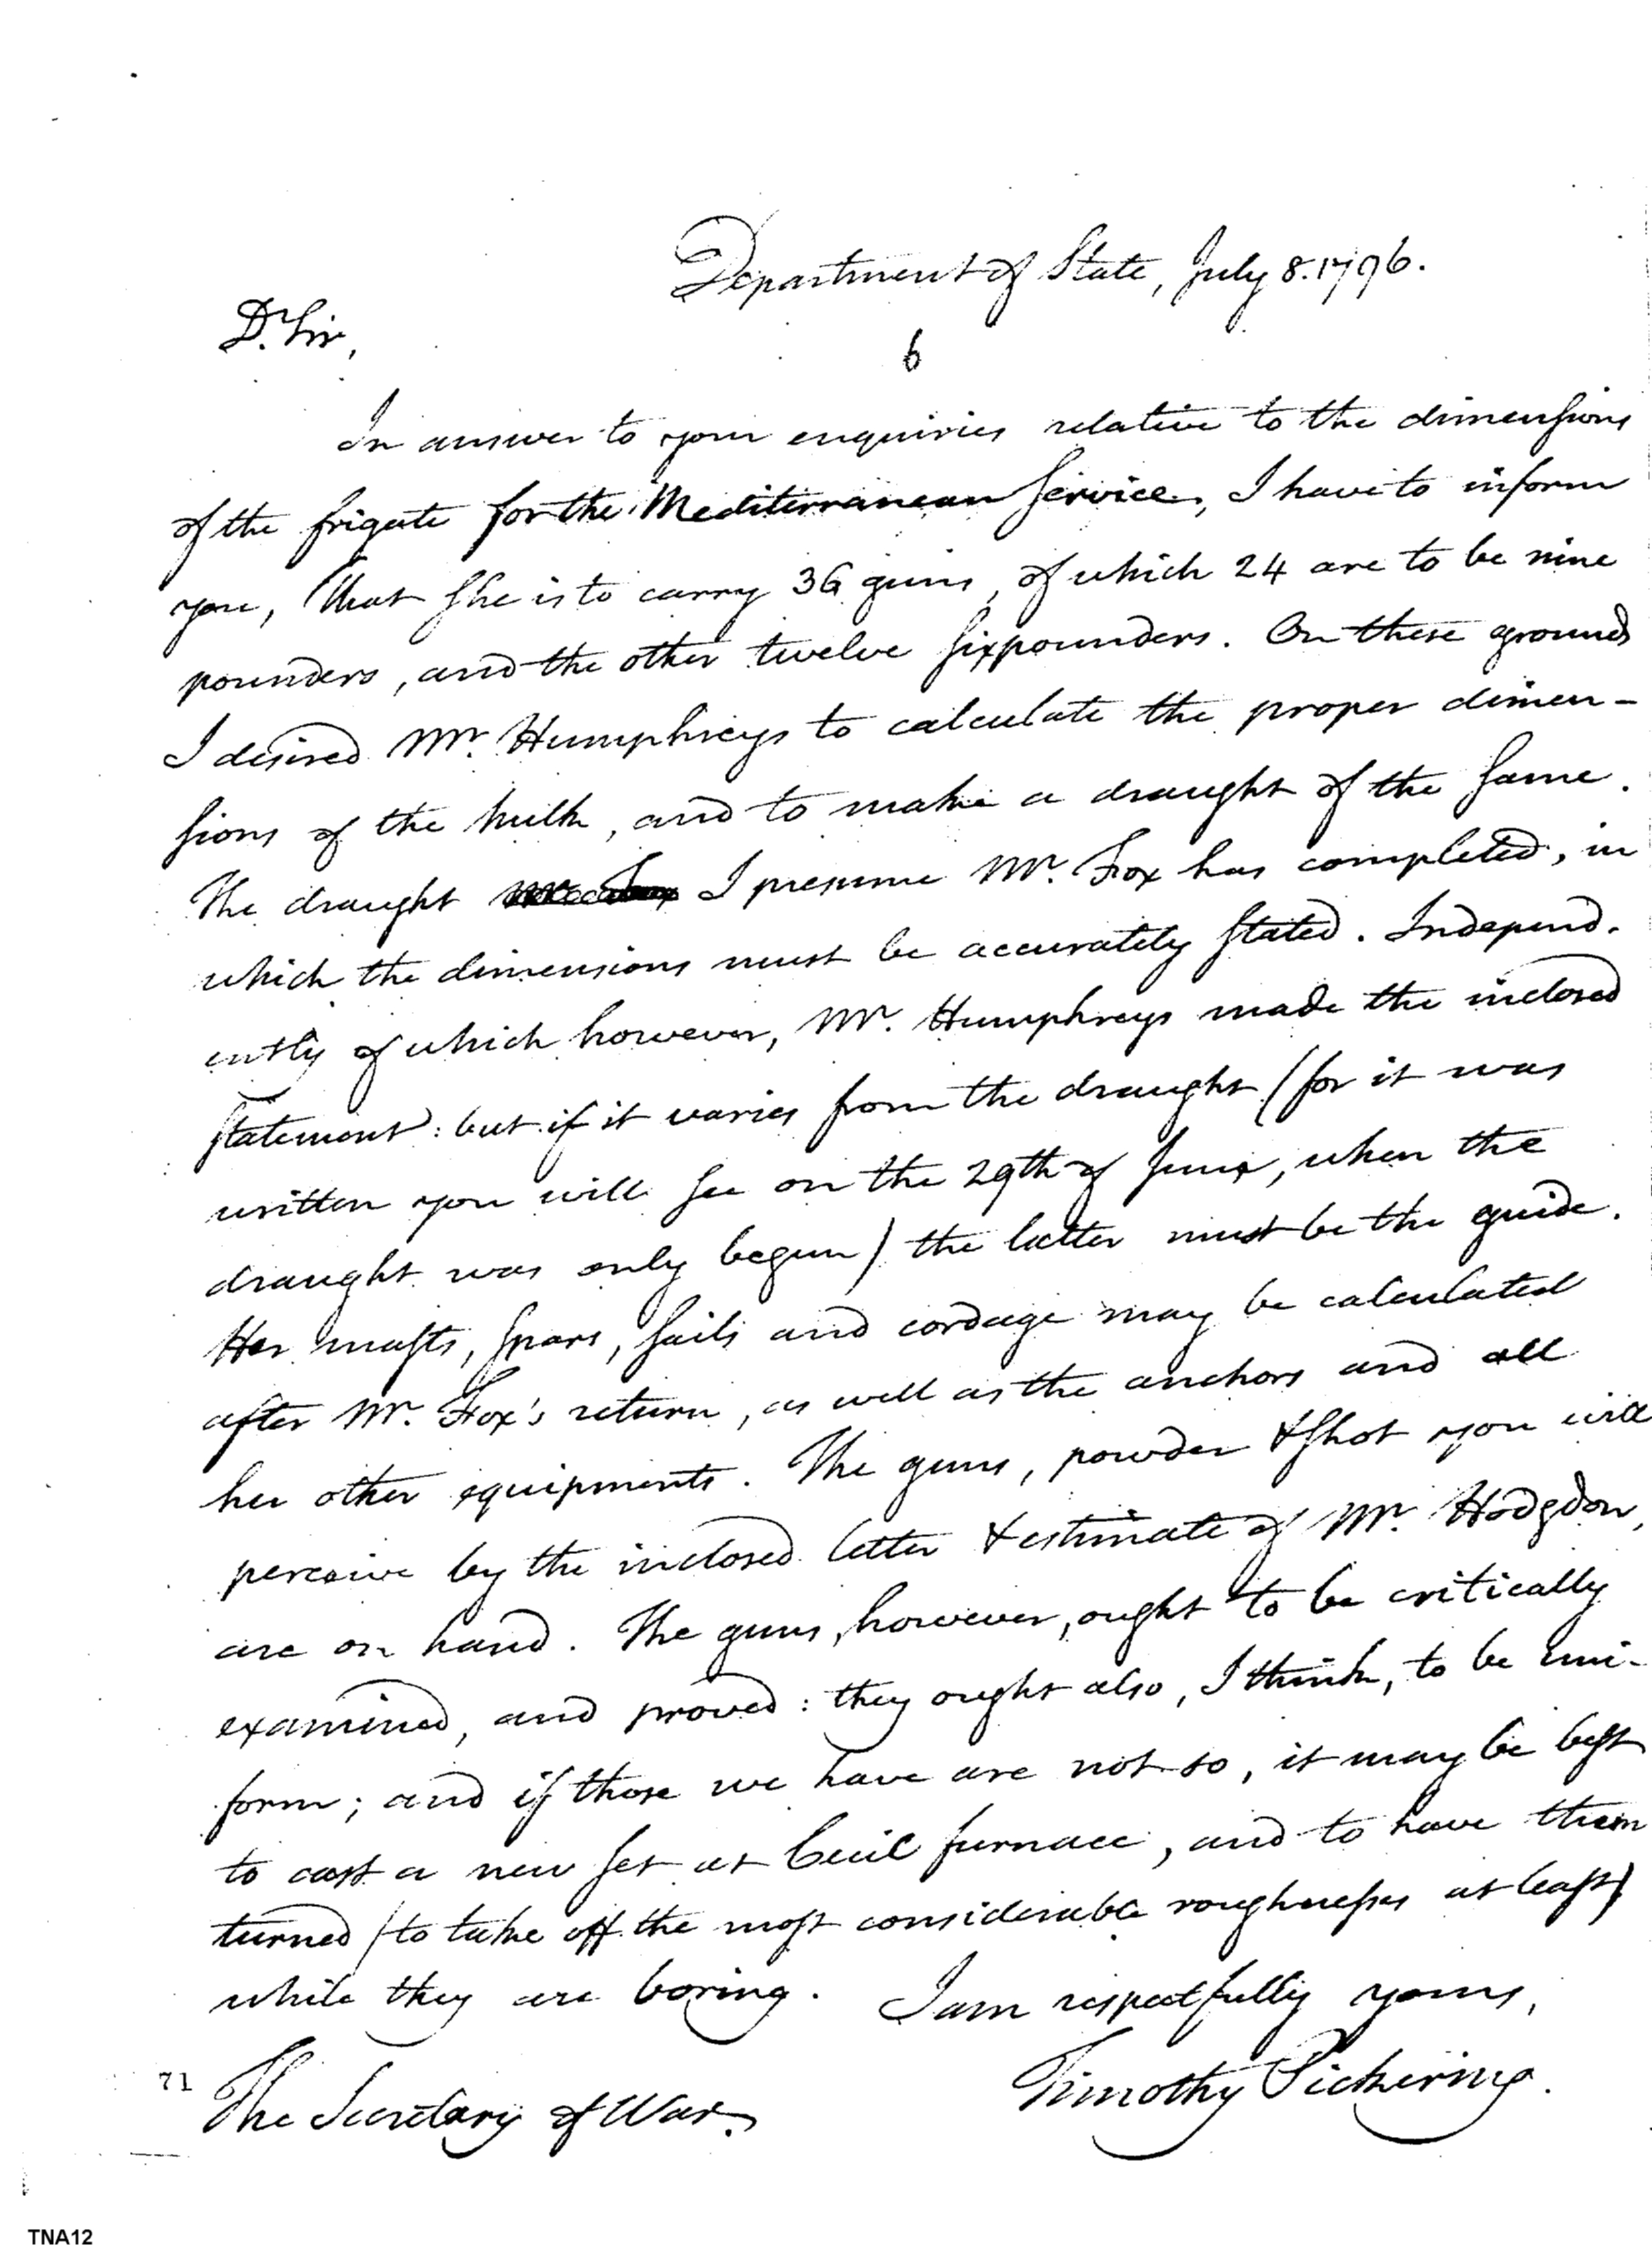 Department of State, July 8. 1796.
Dr. Sir,
6
In answer to your enquiries relative to the dimensions
of the frigate for the Mediterranean service, I have to inform
you, that she is to carry 36 guns, of which 24 are to be nine
pounders, and the other twelve sixpounders. On these grounds
I desired Mr. Humphreys to calculate the proper dimen-
sions of the hulk, and to make a draught of the same.
The draught I presume Mr. Fox has completed, in
which the dimensions must be accurately stated. Independ-
ently of which however, Mr. Humphreys made the inclosed
statement: but if it varies from the draught (for it was
written you will see on the 29th of June, when the
draught was only begun) the latter must be the guide.
Her masts, spars, sails and cordage may be calculated
after Mr. Fox's return, as well as the anchors and all
her other equipments. The guns, powder & shot you will
perceive by the inclosed letter & estimate of Mr. Hodgdon,
are on hand. The guns, however, ought to be critically
examined, and proved: they ought also, I think, to be uni-
form; and if those we have are not so, it may be best
to cast a new set at Cecil furnace, and to have them
turned (to take off the most considerable roughnesses at least)
while they are boring. I am respectfully yours,
Timothy Pickering.
71
The Secretary of War.
TNA12